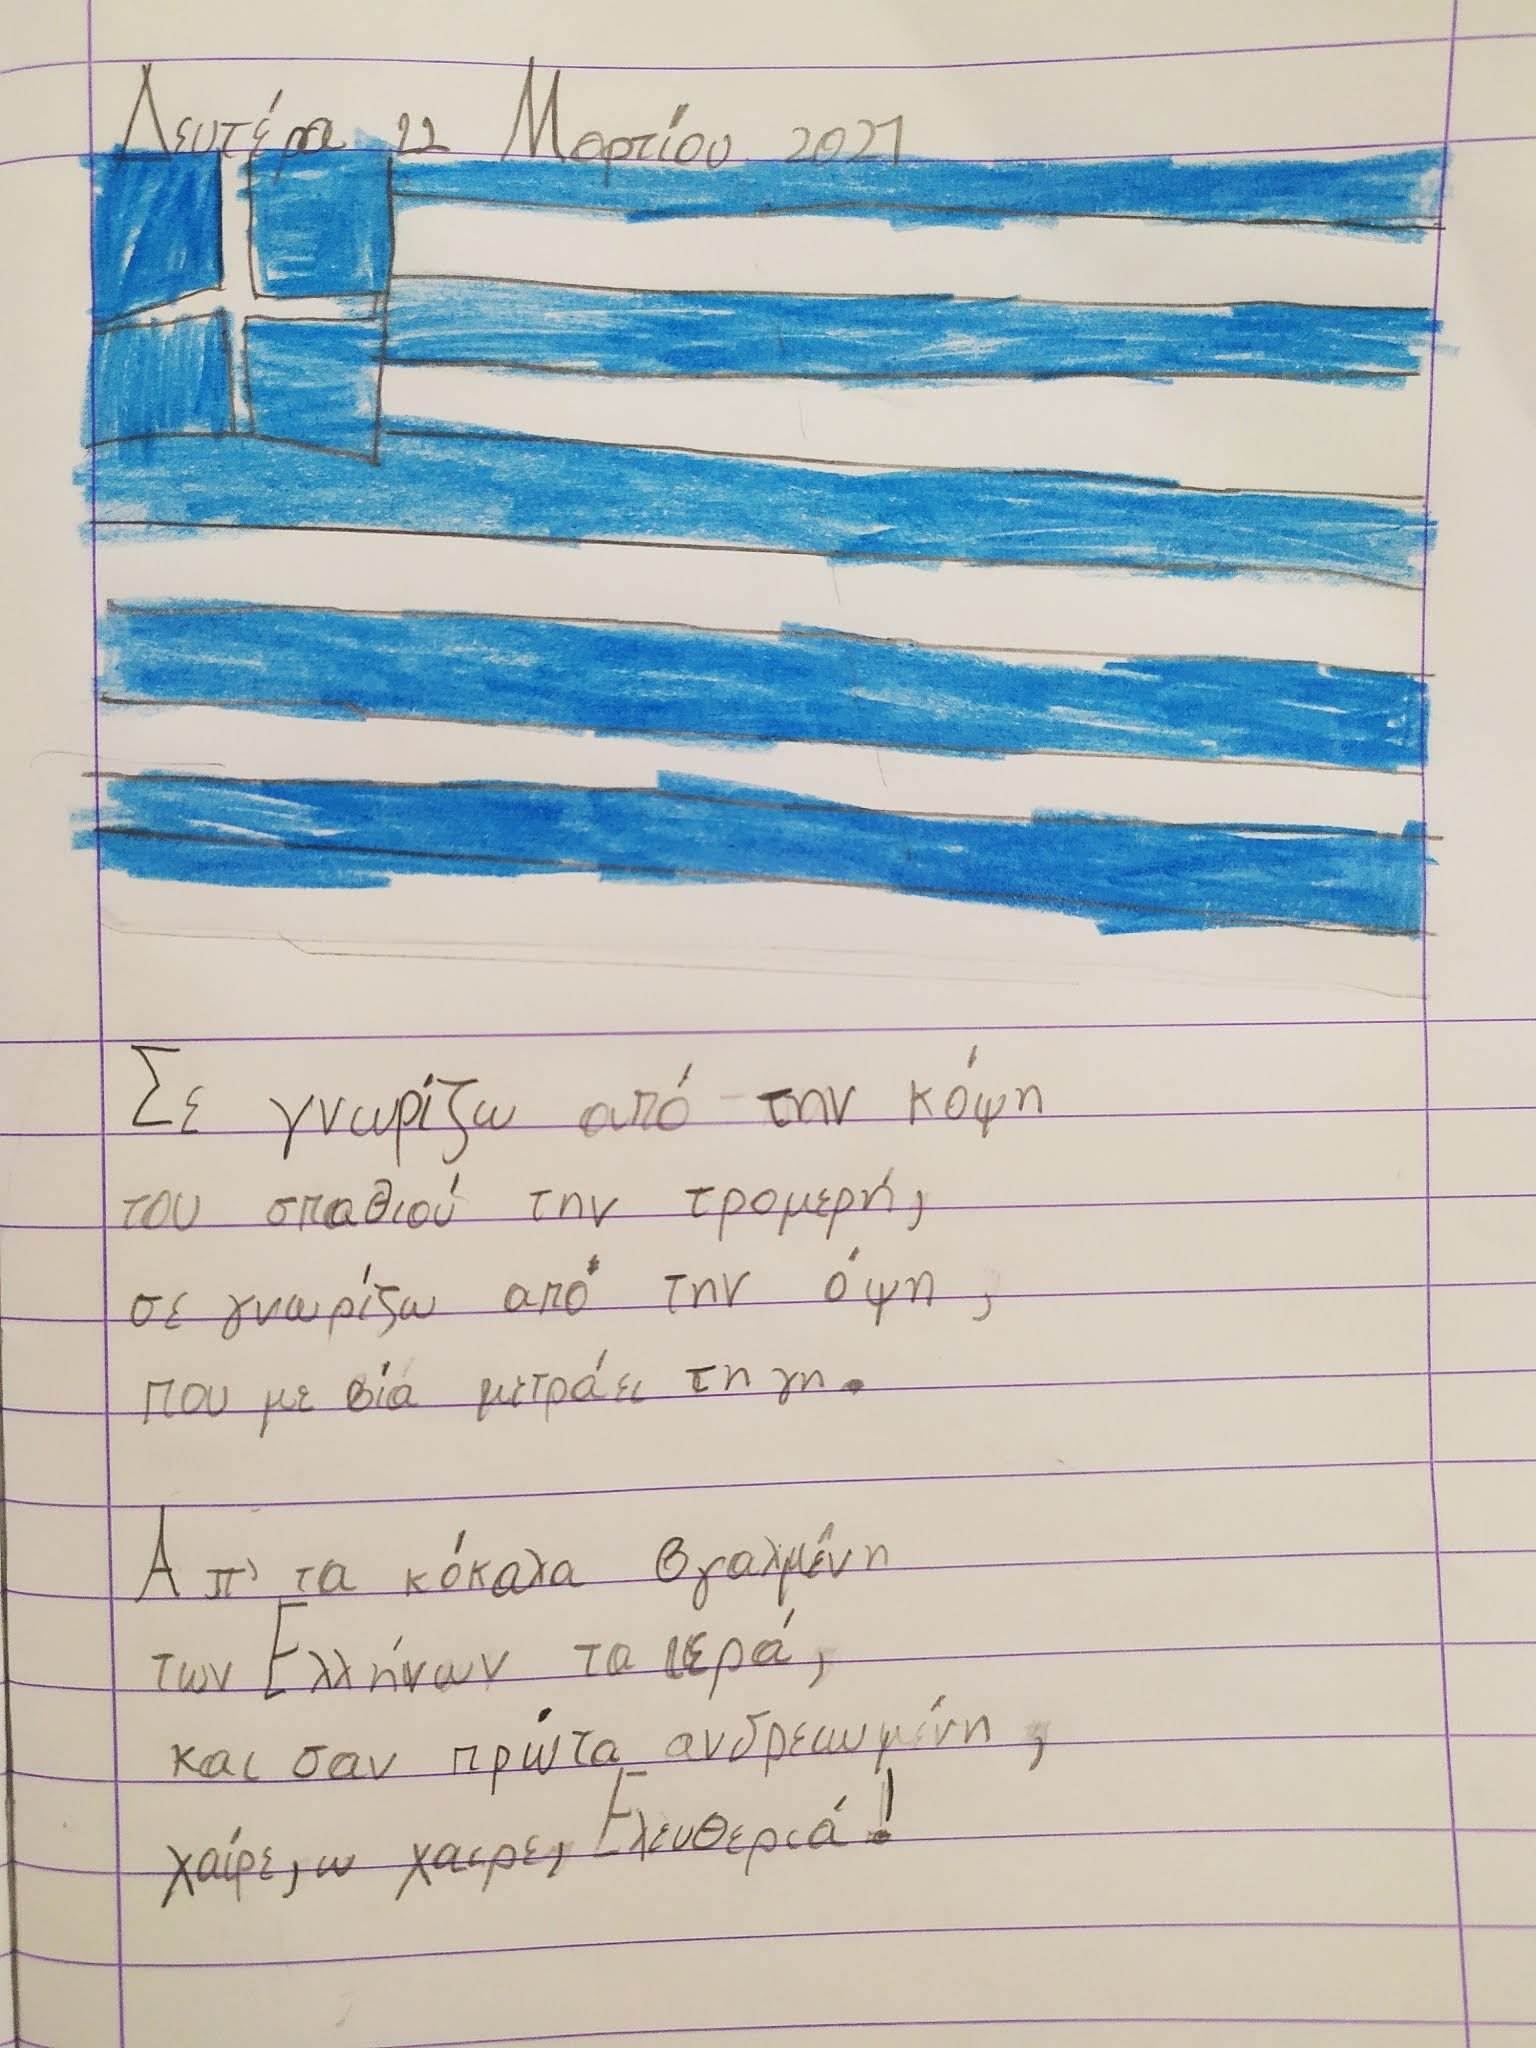 Δευτέρα 22 Μαρτίου 2021
Σε γνωρίζω από την κόψη
του σπαθιού την τρομερή,
σε γνωρίζω από την όψη,
που με βία μετράει τη γη.
Απ' τα κόκαλα βγαλμένη
των Ελλήνων τα ιερά,
και σαν πρώτα ανδρειωμένη,
χαίρε, ω χαιρε, Ελευθεριά!